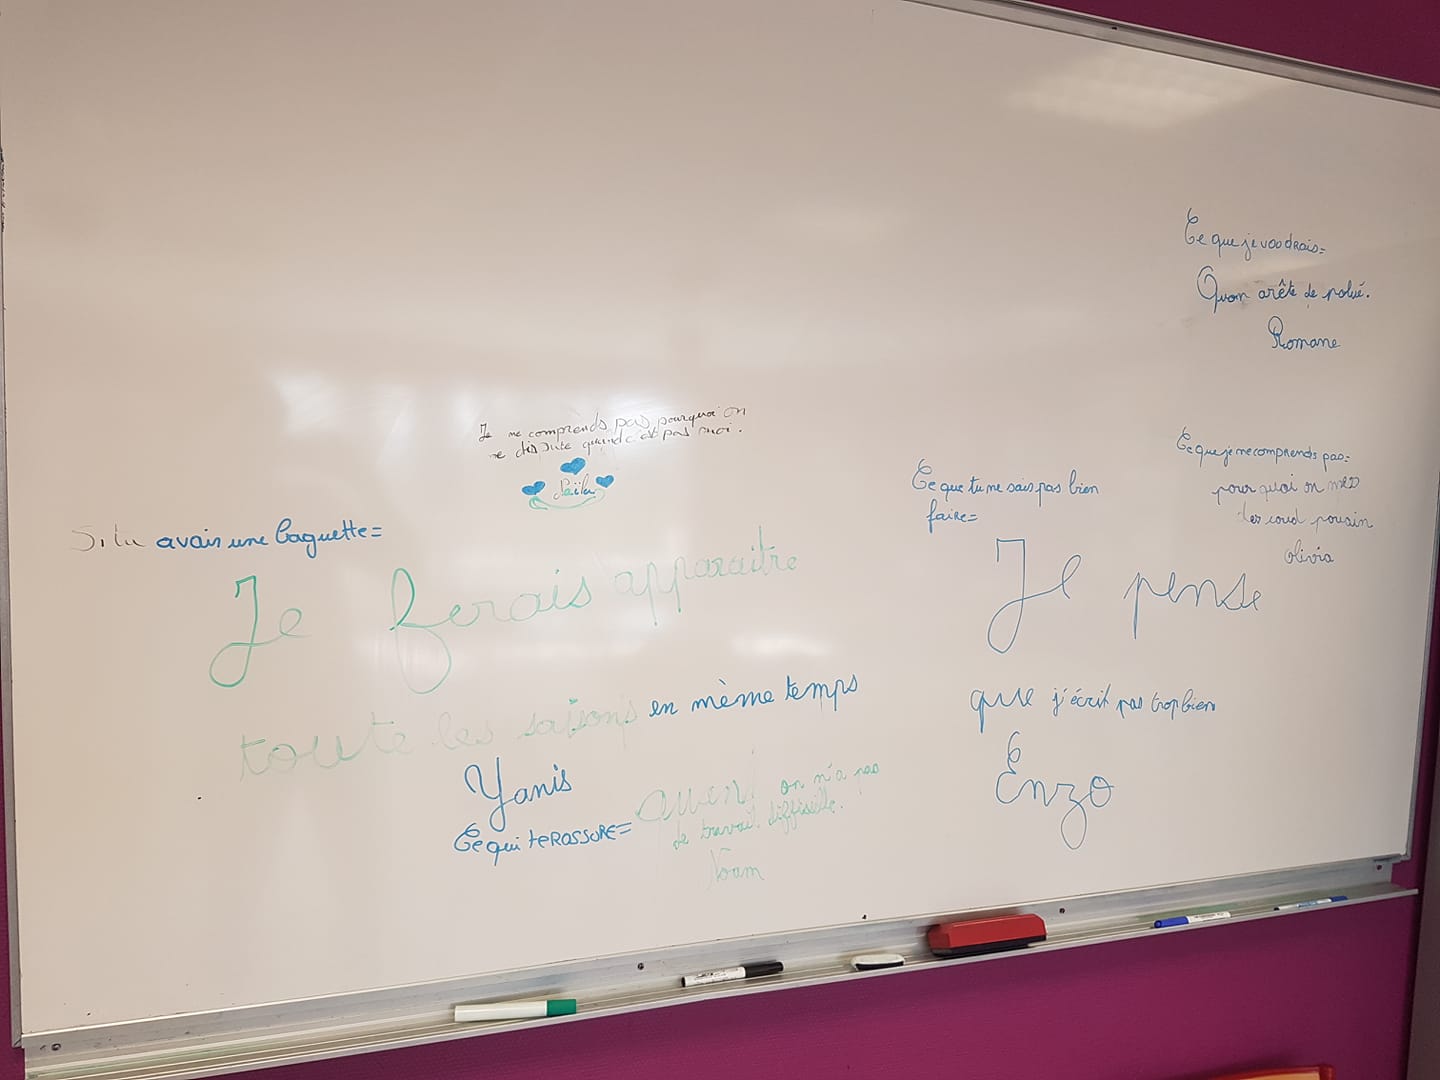 Ce que je voudrais=
Quon arête de polué.
Romane
Je ne comprends pas pourquoi on
me dispute quand c'est pas moi.
Ce que je ne comprends pas=
pourquoi on
des coud pousin
olivia
Ce que tu ne sais pas bien
faire=
Je pense
que j'écrit pas trop bien
Enzo
Si tu avais une baguette=
Je ferais apparaitre
toute les saisons en mème temps
Yanis
Ce qui te RASSURE=
on n'a pas
de travail diffisille.
Noam